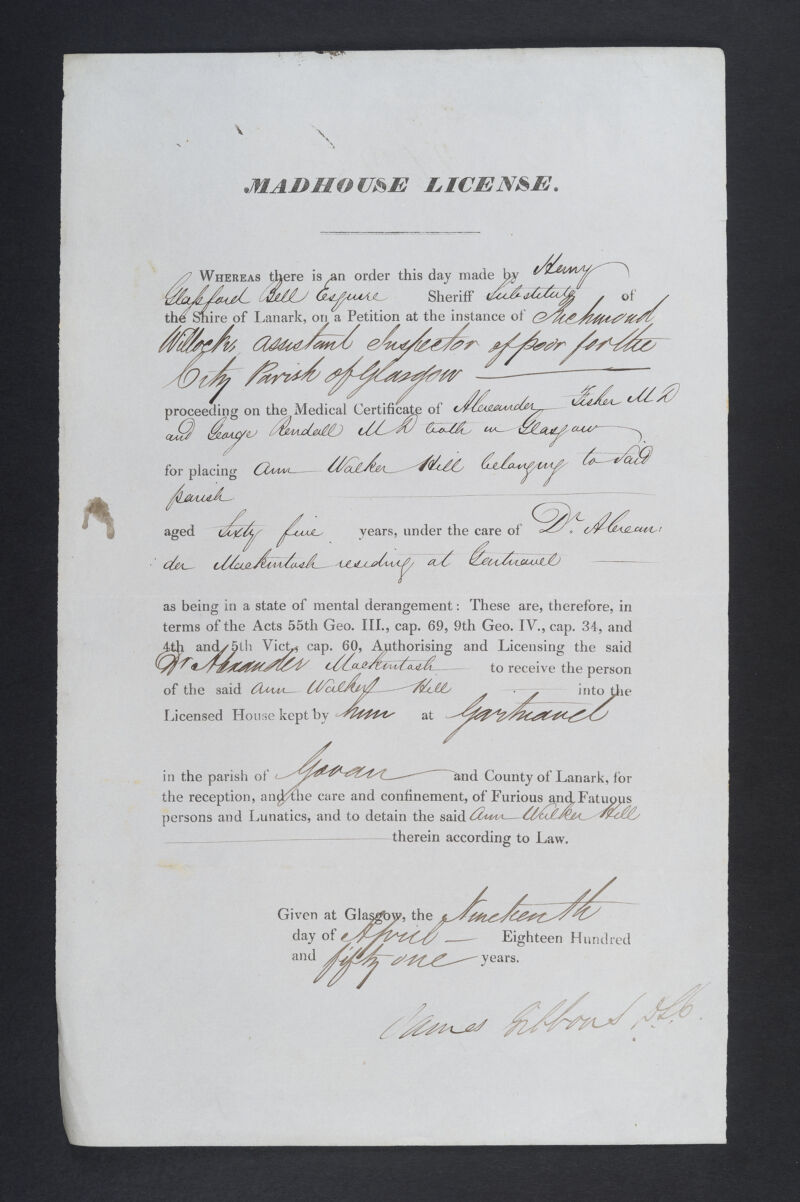 MADHOUSE LICENSE.
WHEREAS there is an order this day made by Henry
Glassford Bell Esquire Sheriff Substitute of
the Shire of Lanark, on a Petition at the instance of Richmond
Willocks Assistant Inspector of poor for the
City Parish of Glasgow
proceeding on the Medical Certificate of Alexander Fisher M D
and George Rendall M D both in Glasgow
for placing Ann Walker Hill belonging to said
parish
aged Sixty five years, under the care of Dr. Alexan-
der Mackintosh residing at Gartnavel
as being in a state of mental derangement: These are, therefore, in
terms of the Acts 55th Geo. III., cap. 69, 9th Geo. IV., cap. 34, and
4th and 5th Vict., cap. 60, Authorising and Licensing the said
Dr Alexander Mackintosh to receive the person
of the said Ann Walker Hill into the
Licensed House kept by him at Gartnavel
in the parish of Govan and County of Lanark, for
the reception, and the care and confinement, of Furious and Fatuous
persons and Lunatics, and to detain the said Ann Walker Hill
therein according to Law.
Given at Glasgow, the Nineteenth
day of April Eighteen Hundred
and fifty one years.
James Gibbons